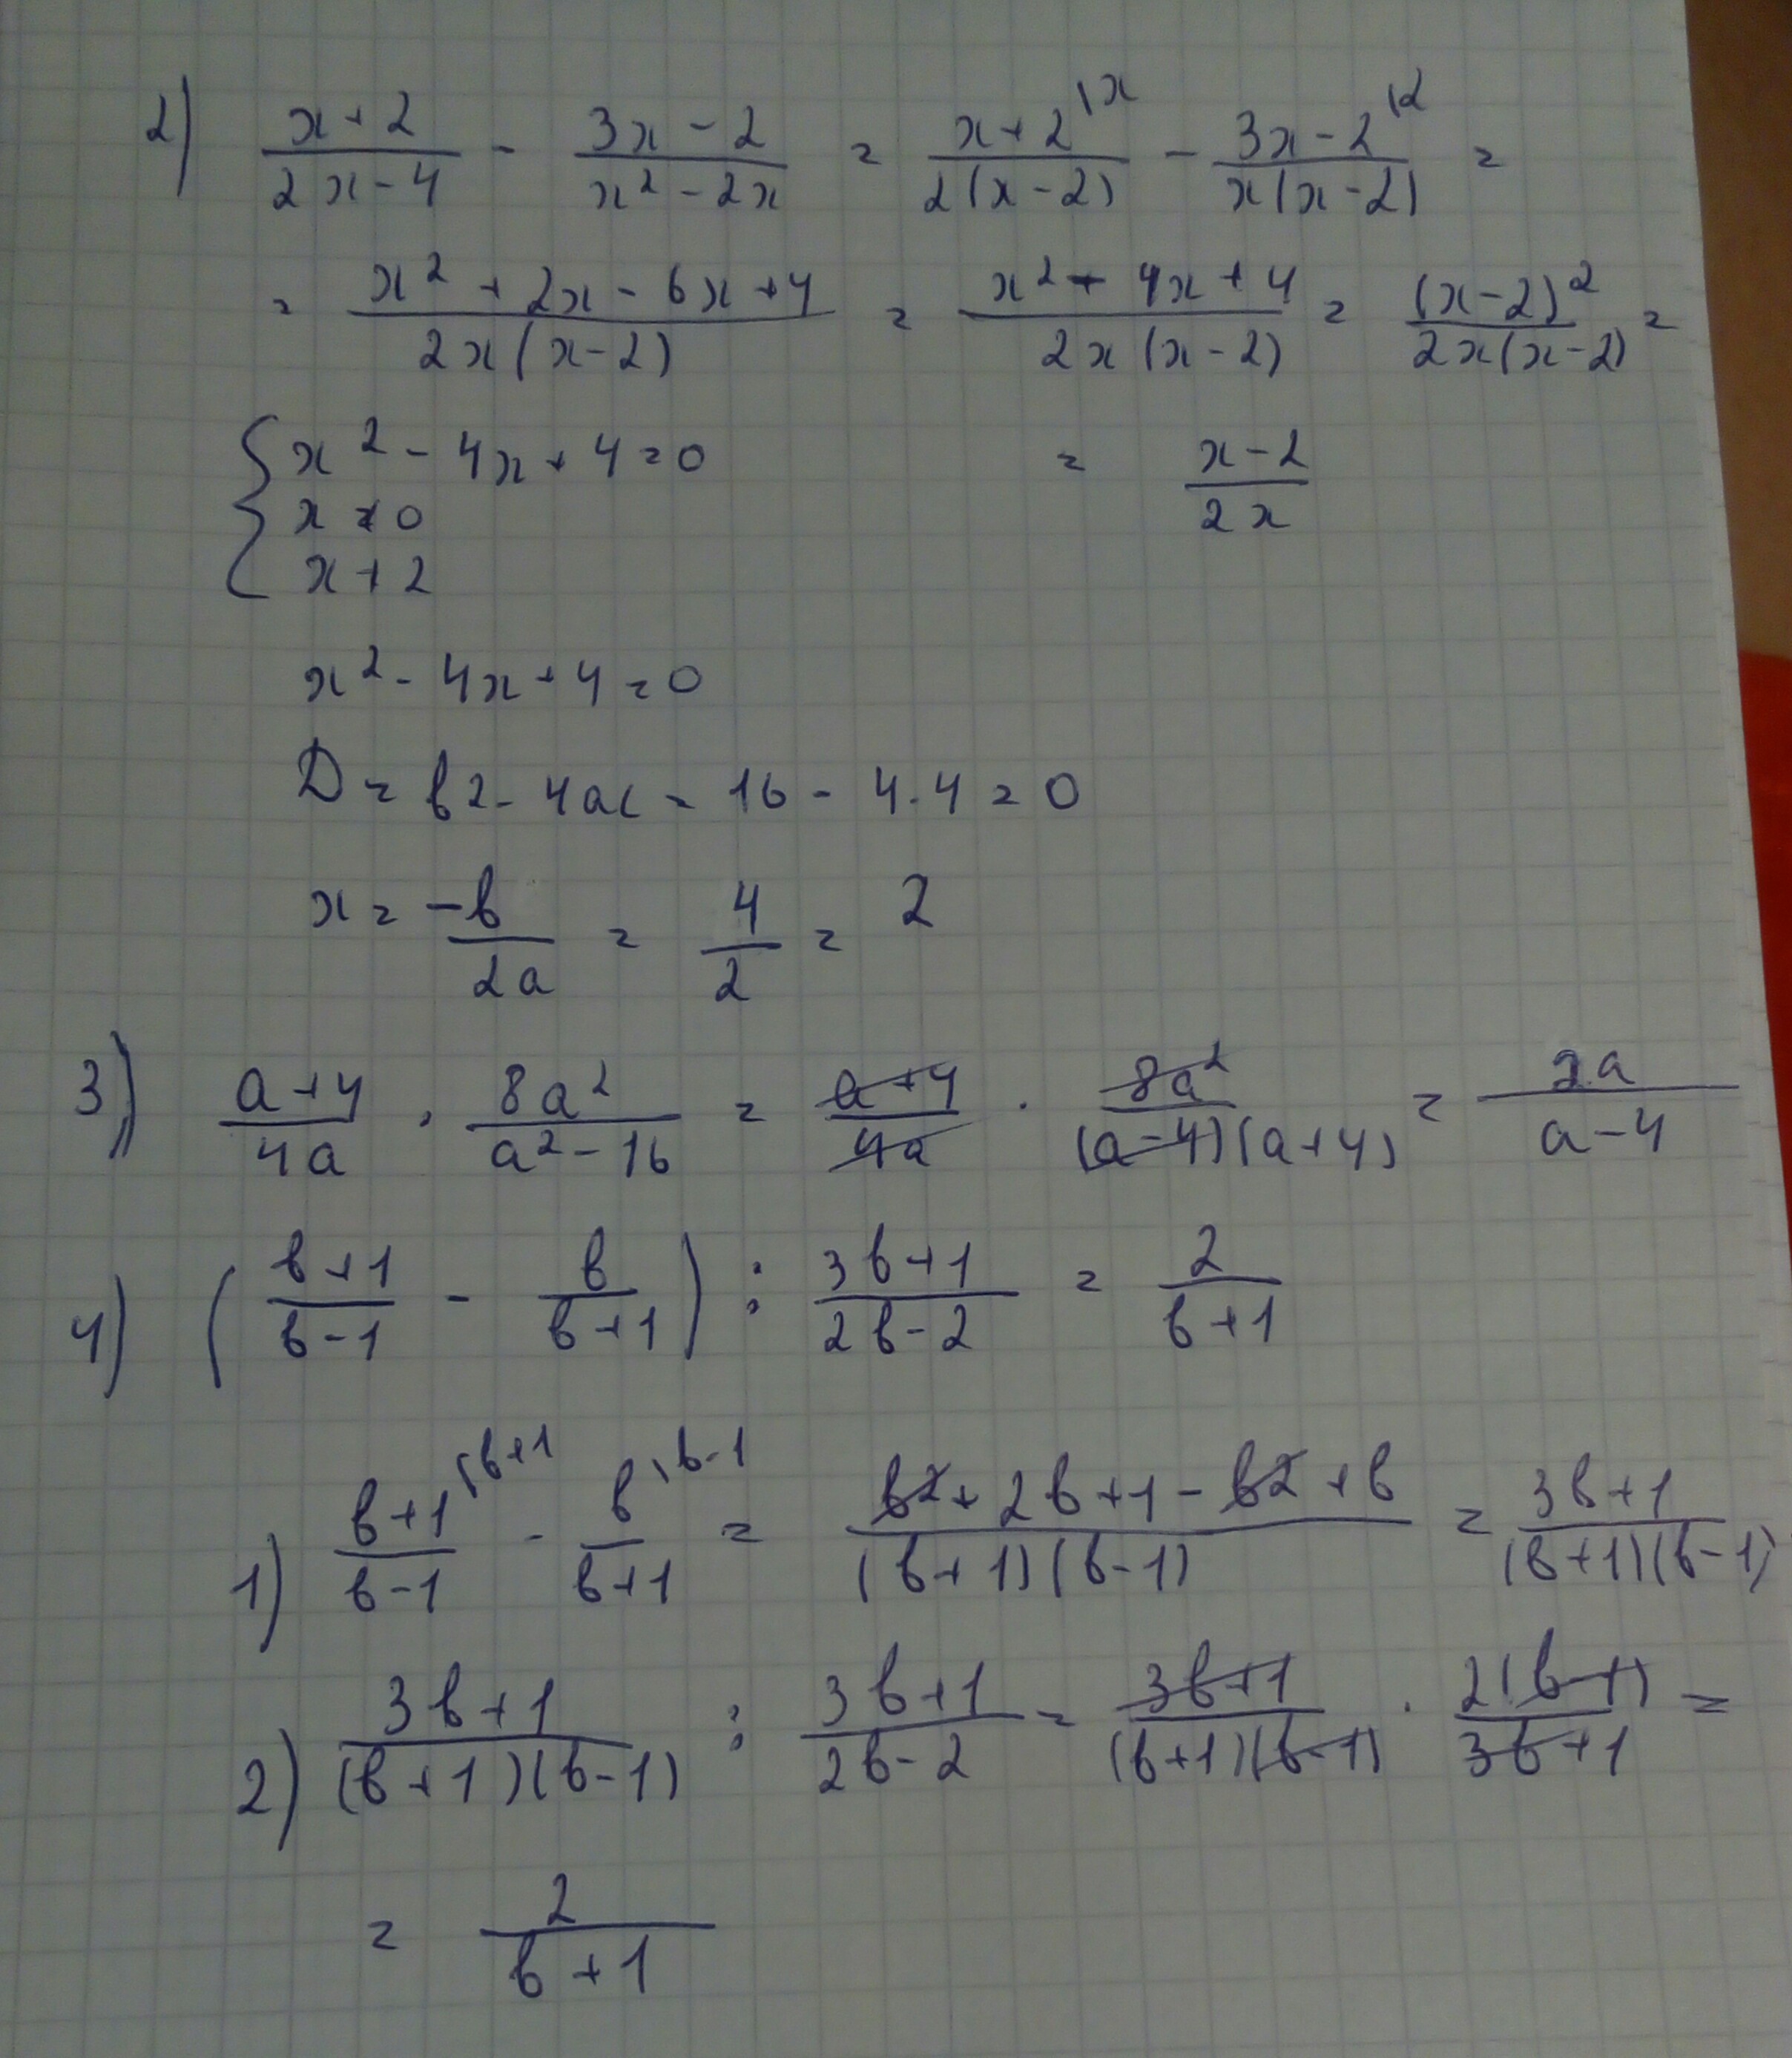 2) (x+2)/(2x-4) - (3x-2)/(x²-2x) = (x+2\x)/(2(x-2)) - (3x-2\2)/(x(x-2)) =
= (x²+2x-6x+4)/(2x(x-2)) = (x²-4x+4)/(2x(x-2)) = (x-2)²/(2x(x-2)) =
{ x²-4x+4=0 = (x-2)/(2x)
x≠0
x≠2
x²-4x+4=0
D = b2-4ac = 16-4·4=0
x = -b/(2a) = 4/2 = 2
3) (a+4)/(4a) · 8a²/(a²-16) = (a+4)/(4a) · 8a²/((a-4)(a+4)) = 2a/(a-4)
4) ((b+1)/(b-1) - b/(b+1)) : (3b+1)/(2b-2) = 2/(b+1)
1) (b+1\b+1)/(b-1) - (b\b-1)/(b+1) = (b2+2b+1-b2+b)/((b+1)(b-1)) = (3b+1)/((b+1)(b-1))
2) (3b+1)/((b+1)(b-1)) : (3b+1)/(2b-2) = (3b+1)/((b+1)(b-1)) · 2(b-1)/(3b+1) =
= 2/(b+1)